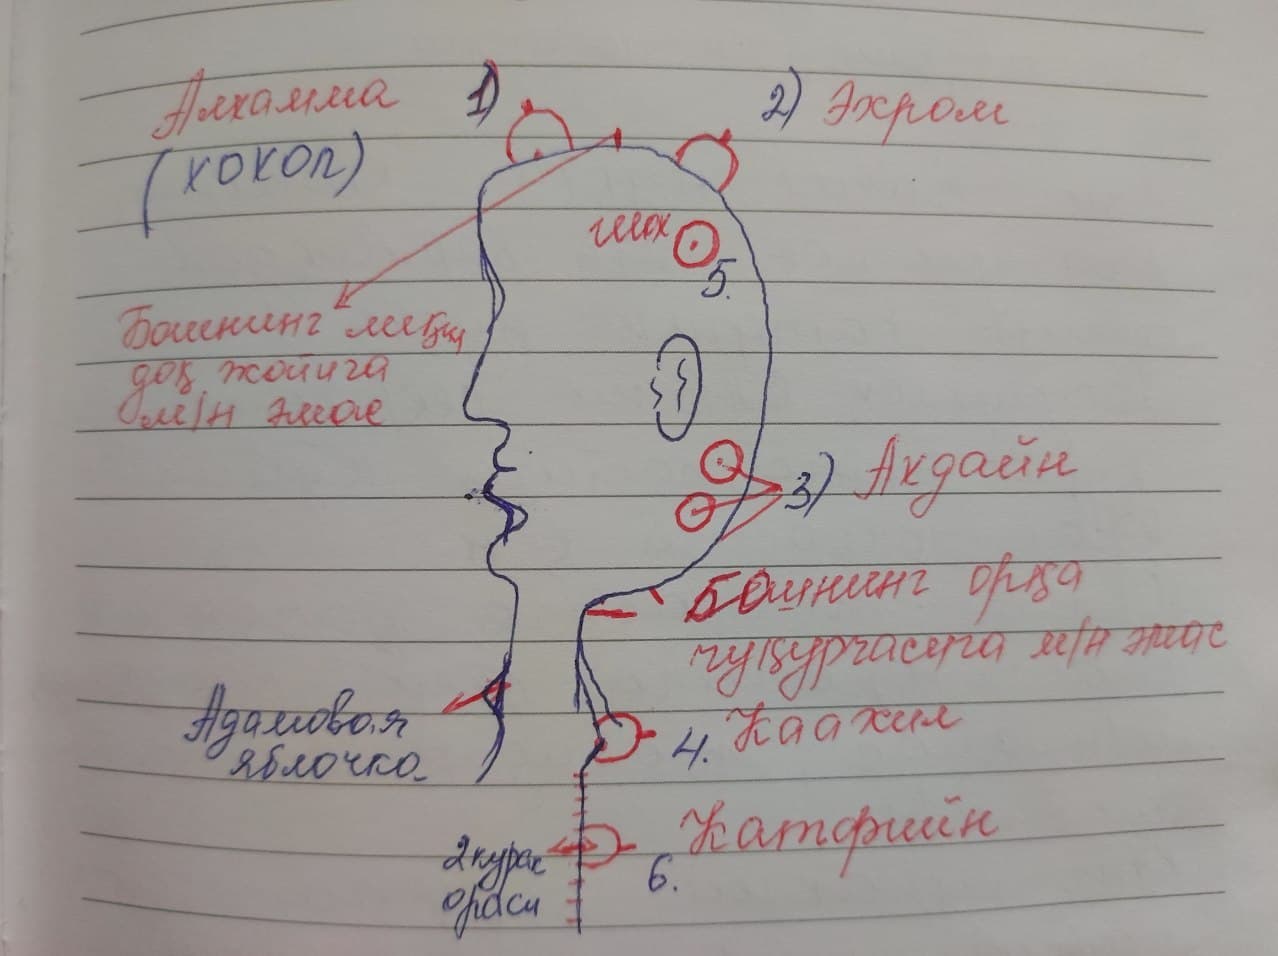 Алхамма
(кокол)
1)
2) Эхром
шох
5.
Бошнинг
доқ жойига
м/н эмас
3) Ахдайн
Бошнинг орқа
чуқурчасига м/н эмас
Адамовая
яблочко
4. Каахил
2 курак
ораси
6. Катфийн